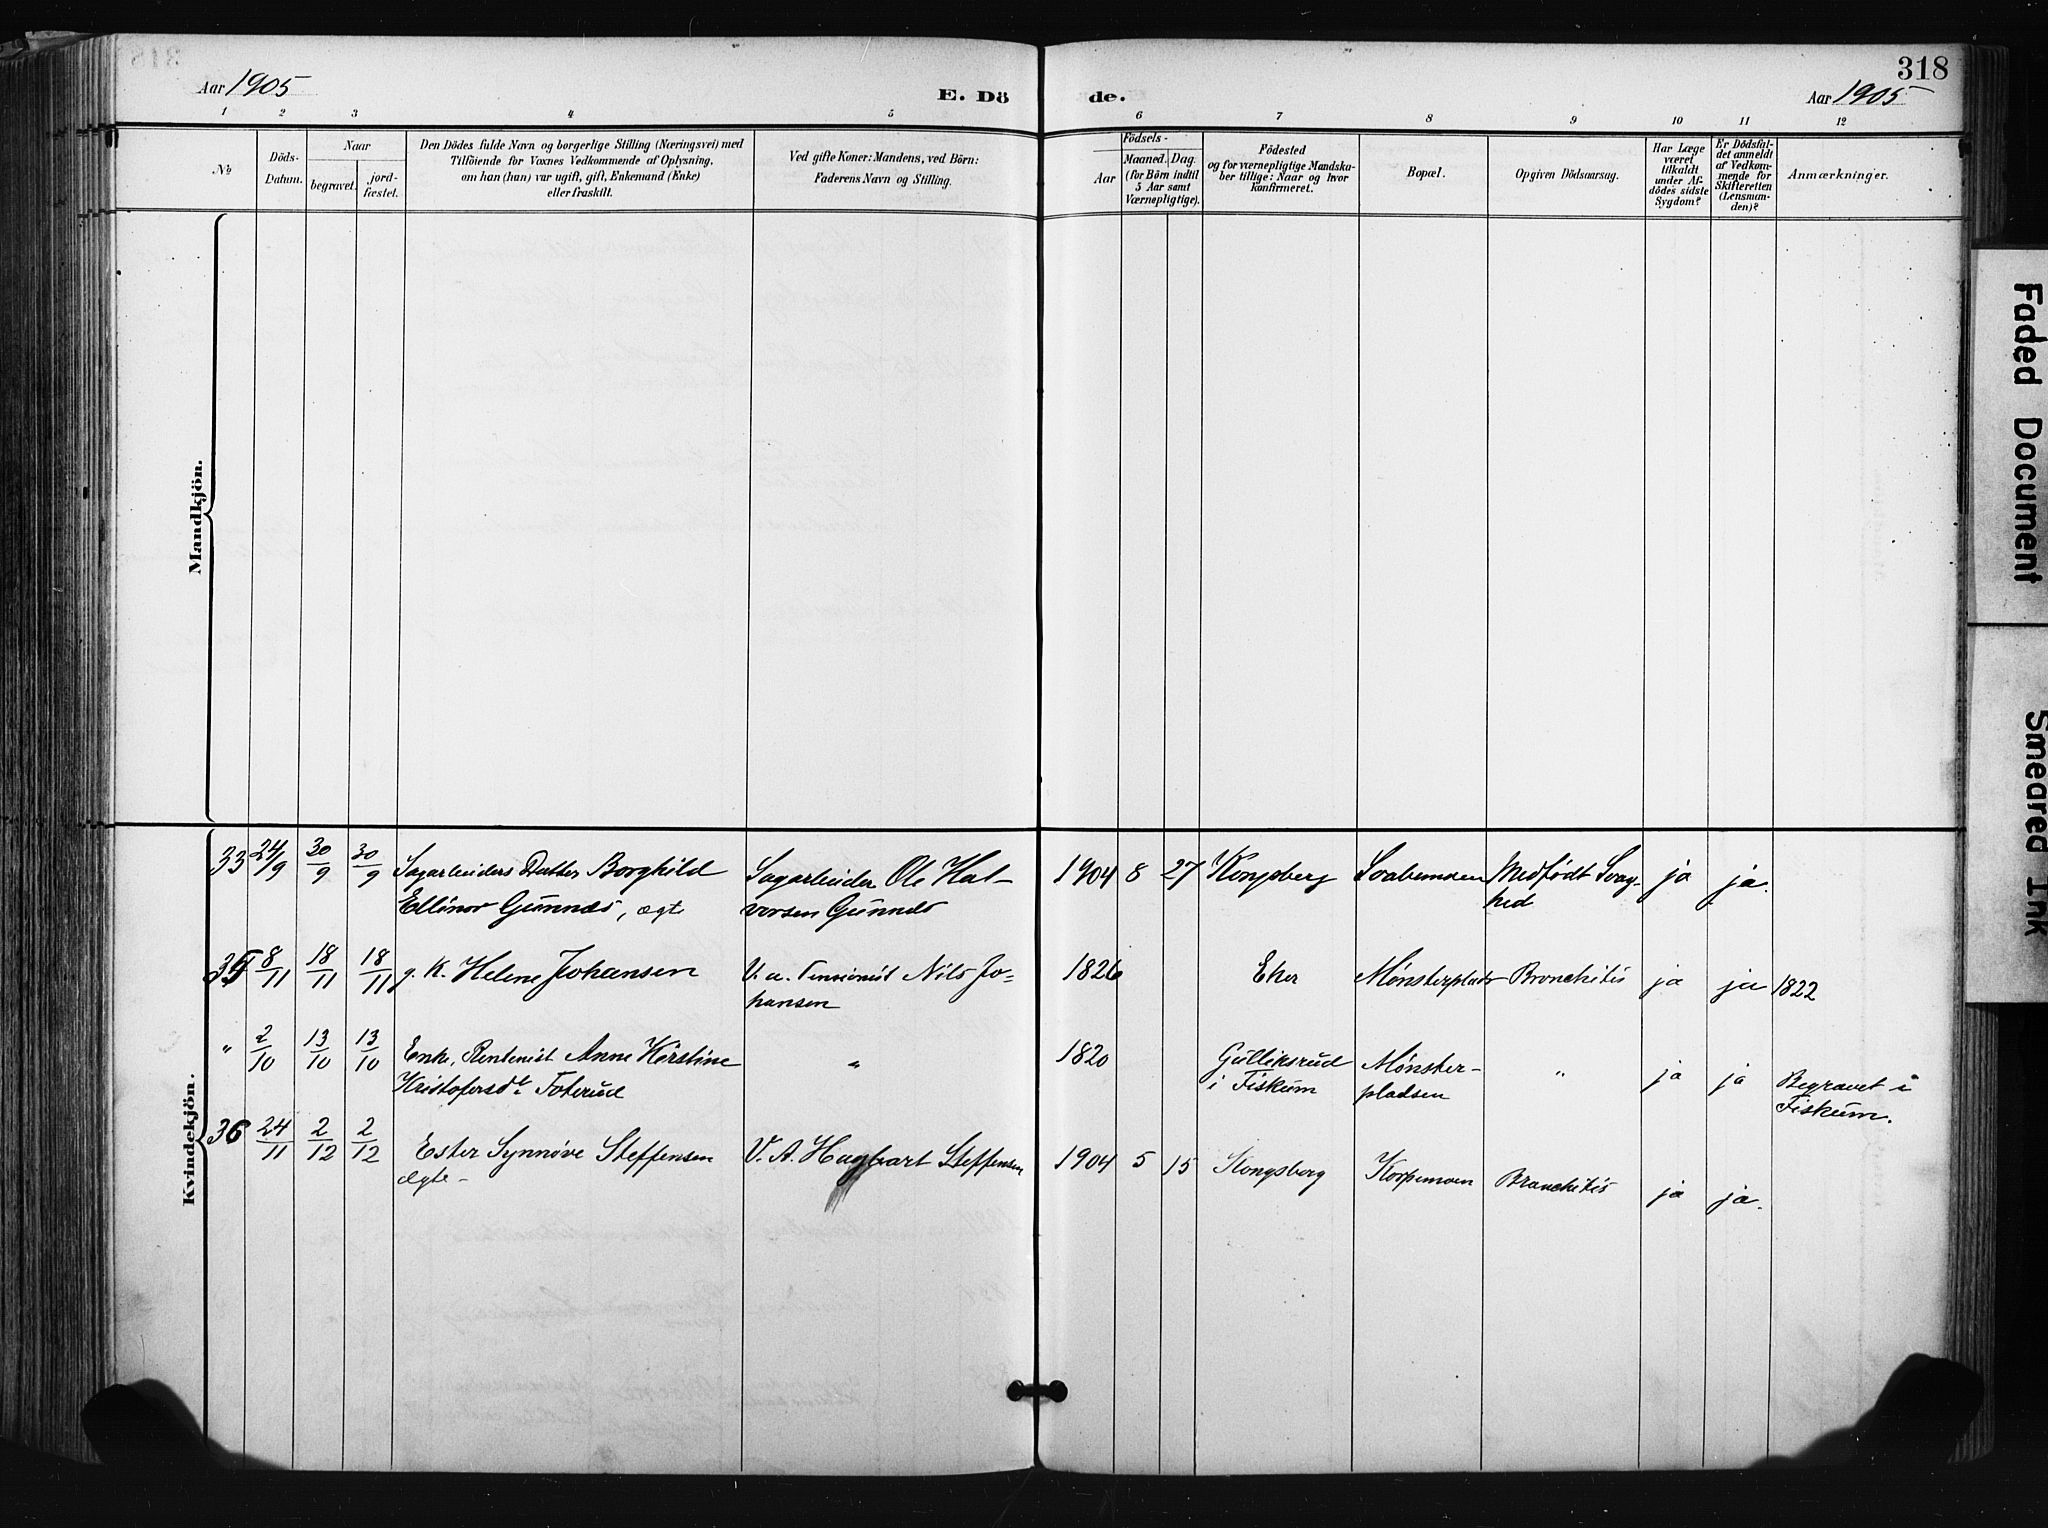 318
Aar 1905
E. Dö de.
Aar 1905
1 2 3 4 5 6 7 8 9 10 11 12
No
Döds-
Datum.
Naar
begravet.
jord-
fæstet.
Den Dödes fulde Navn og borgerlige Stilling (Næringsvei) med
Tilföiende for Voxnes Vedkommende af Oplysning,
om han (hun) var ugift, gift, Enkemand (Enke)
eller fraskilt.
Ved gifte Koner: Mandens, ved Börn:
Faderens Navn og Stilling.
Födsels-
Aar
Maaned. Dag.
(for Börn indtil
5 Aar samt
Værnepligtige).
Födested
og for værnepligtige Mandska-
ber tillige: Naar og hvor
konfirmeret.
Bopæl.
Opgiven Dödsaarsag.
Har Læge
været
tilkaldt
under Af-
dödes sidste
Sygdom?
Er Dödsfal-
det anmeldt
af Vedkom-
mende for
Skifteretten
(Lensman-
den)?
Anmærkninger.
Mandkjön.
Kvindekjön.
33 24/9 30/9 30/9 Sagarbeiders Datter Borghild Sagarbeider Ole Hal- 1904 8 27 Kongsberg Medfødt Svag- ja ja.
Ellinor Gunnes, ægte vorsen Gunnes hed
35 8/11 18/11 18/11 g. K. Helene Johansen V. a. Pensionist Nils Jo- 1826 Eker Mønsterplads Bronchitis ja ja 1822
hansen
" 2/10 13/10 13/10 Enke, Rentenist Anne Kirstine " 1820 Gulliksrud Mønster- " ja ja Begravet i
Kristofersdt. Foterud i Fiskum pladsen Fiskum.
36 24/11 2/12 2/12 Ester Synnøve Steffensen V. A. Hagbart Steffensen 1904 5 15 Kongsberg Korpemoen Bronchitis ja ja.
ægte -
Faded Document
Smeared Ink